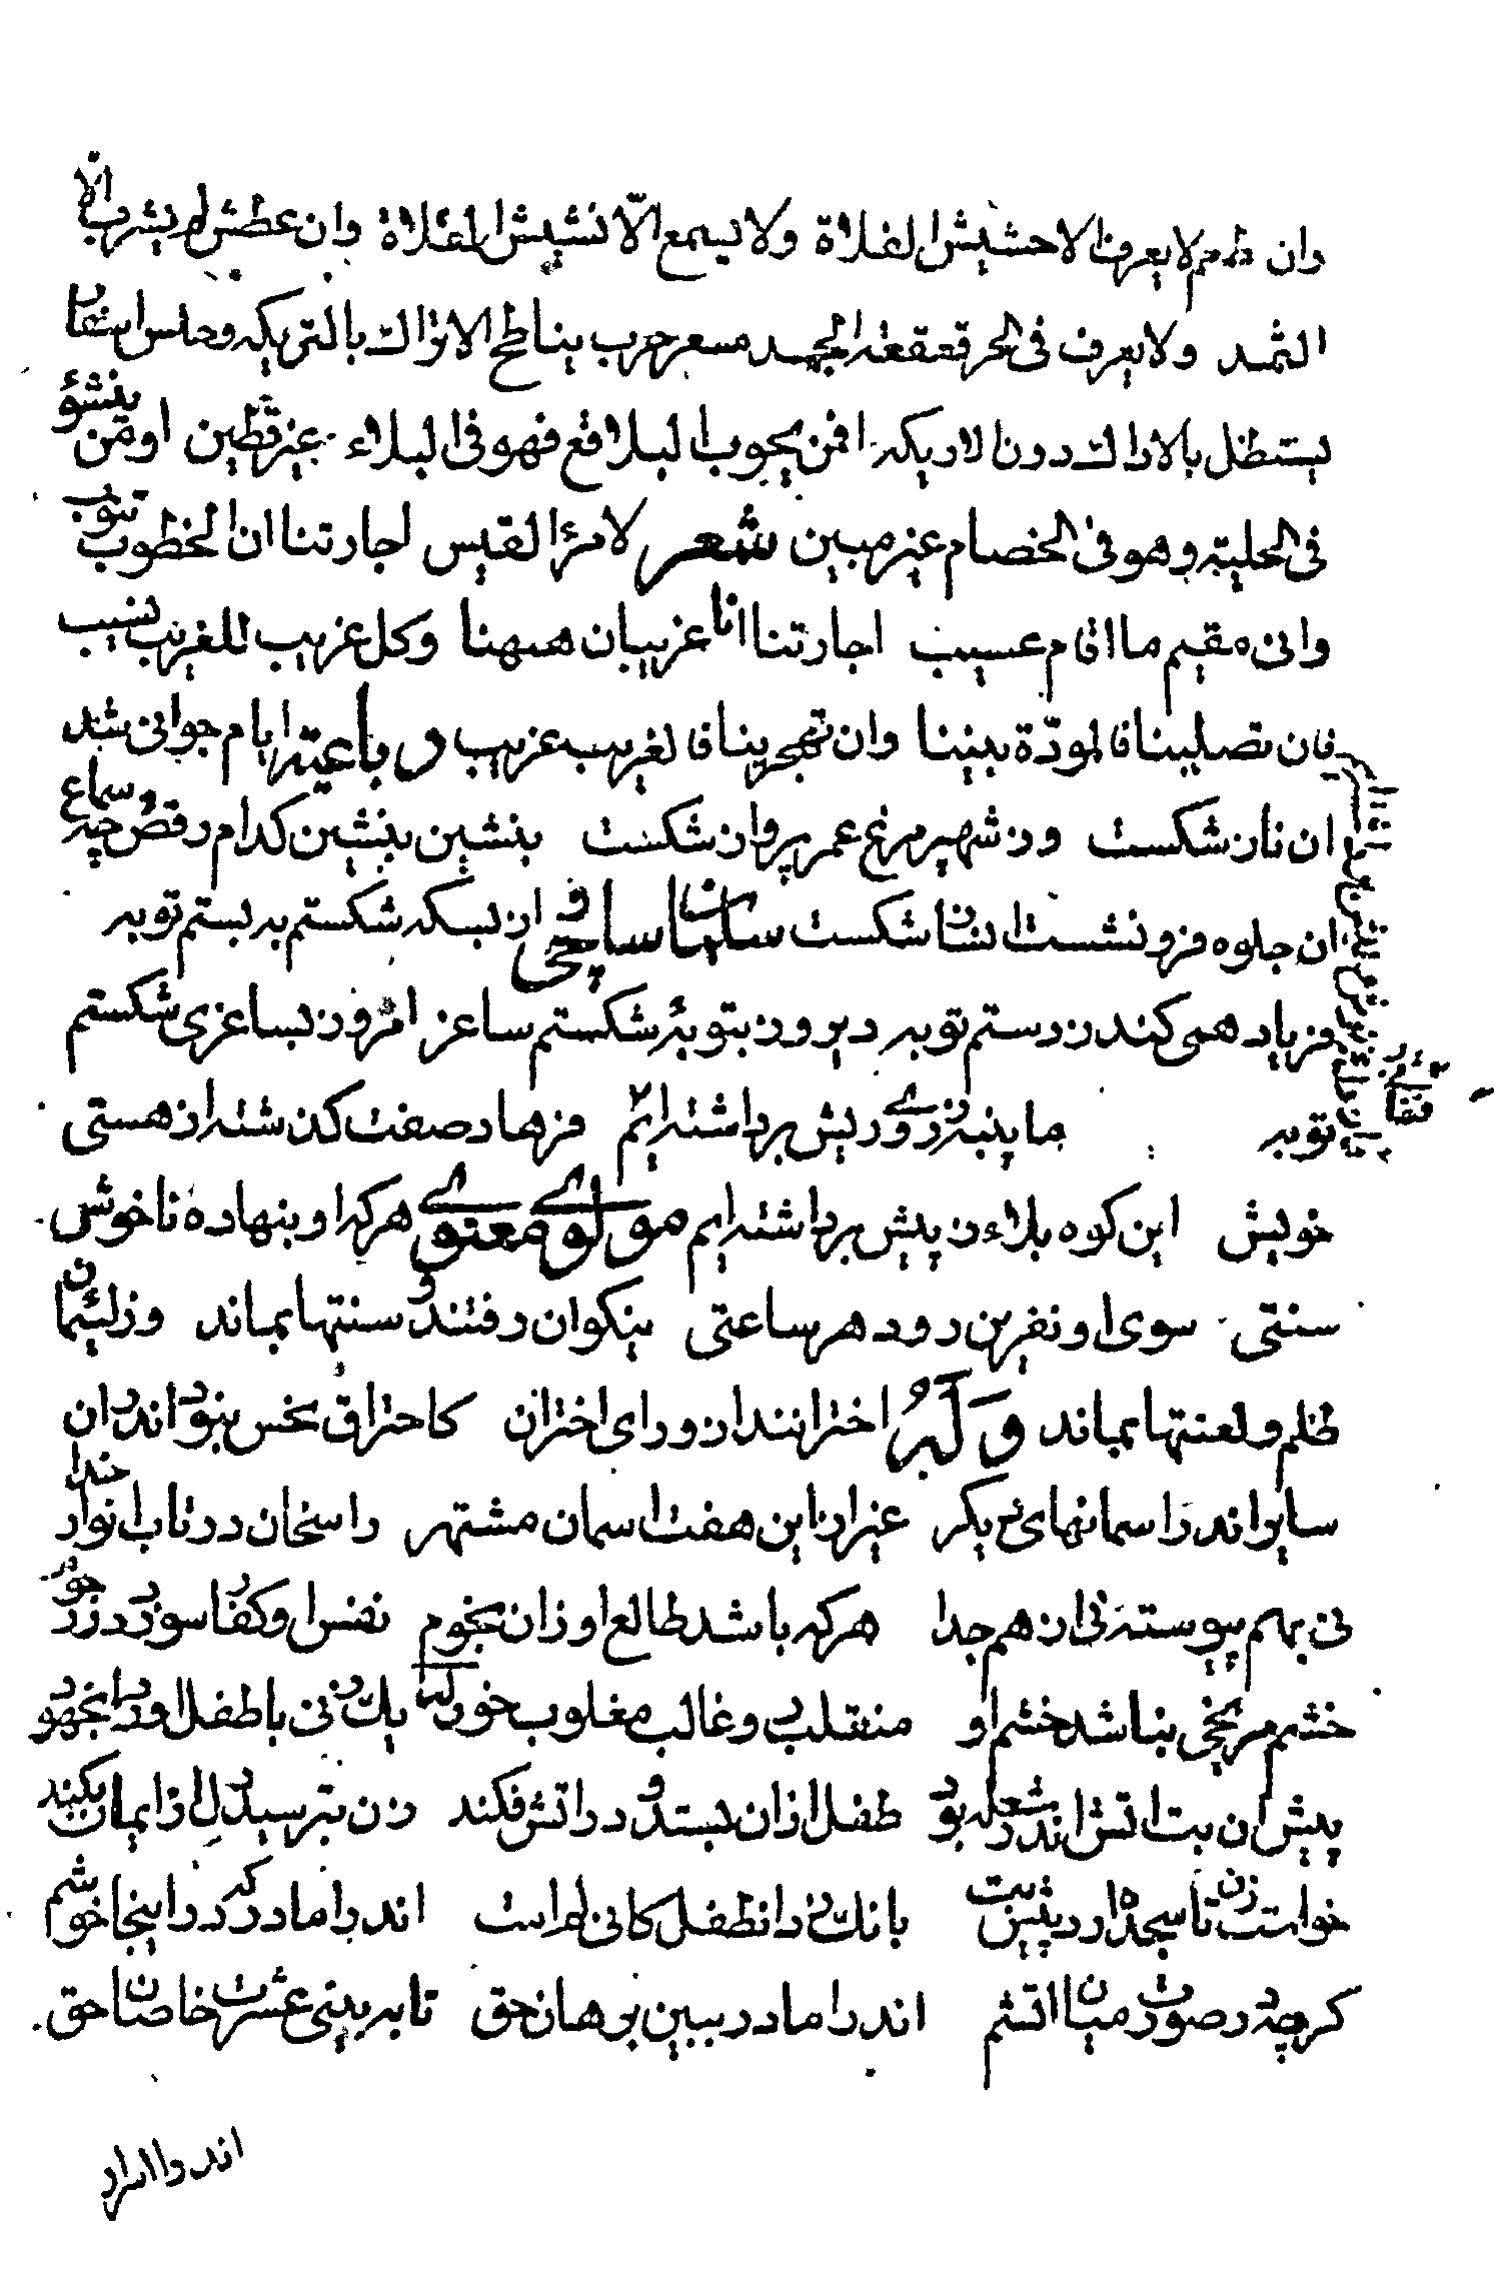 وان طعم لا يعرف الا حشيش الفلاة ولا يسمع الّا نشيش المقلاة وان عطش لم يشرب الّا
الثمد ولا يعرف فى الحر قعقعة الجمد مسعر حرب يناطح الاتراك بالتريكه وحلس
يستظل بالاراك دون الاريكه افمن يجوب البلاقع فهو فى البلاء غير قطين او من ينشؤ
فى الحلية وهو فى الخصام غير مبين شعر لامرؤ القيس اجارتنا ان الخطوب تنوب
وانى مقيم ما اقام عسيب اجارتنا انا غريبان ههنا وكل غريب للغريب نسيب
فان تصلينا فالمودّة بيننا وان تهجرينا فالغريب غريب رباعية ايام جوانى شد
ان ناز شكست وز شهپر مرغ عمر پرواز شكست بنشين بنشين كدام رقص و چه سماع
ان جلوه فرو نشست ان ساز شكست سلمان ساوجى از بسكه شكستم به بستم توبه
فرياد همى كند ز دستم توبه ديروز بتوبۀ شكستم ساغر امروز بساغرى شكستم
توبه ما پنبه ز روى ريش برداشته ايم فرهاد صفت كذشته از هستى
خويش اين كوه بلاء ز پيش برداشته ايم مولوى معنوى هر كه او بنهاده ناخوش
سنتى سوى او نفرين رود هر ساعتى نيكوان رفتند و سنتها بماند وز لئيمان
ظلم و لعنتها بماند وَلَهُ اخترانند از وراى اختران كاحتراق نحس نبود اندران
سايراند در اسمانهاى ديكر غير ازين هفت اسمان مشتهر راسخان در تاب انوار خدا
نى بهم پيوسته نى از هم جدا هر كه باشد طالع او زان نجوم نفس او كفار سوزد در رجوم
خشم مريخى نباشد خشم او منقلب رو غالب مغلوب خو وله يك زنى با طفل اورد ان جهود
پيش ان بت اتش اندر شعله بود طفل ازان بستد و در اتش فكند زن بترسيد دل از ايمان بكند
خواست زن تا سجده ارد پيش بت بانك زد ان طفل كانى لم امت اندر ا مادر كه در اينجا خوشم
كر چه در صورت ميان اتشم اندر ا مادر ببين برهان حق تا به بينى عشرت خاصان حق
اندر ا اسرار